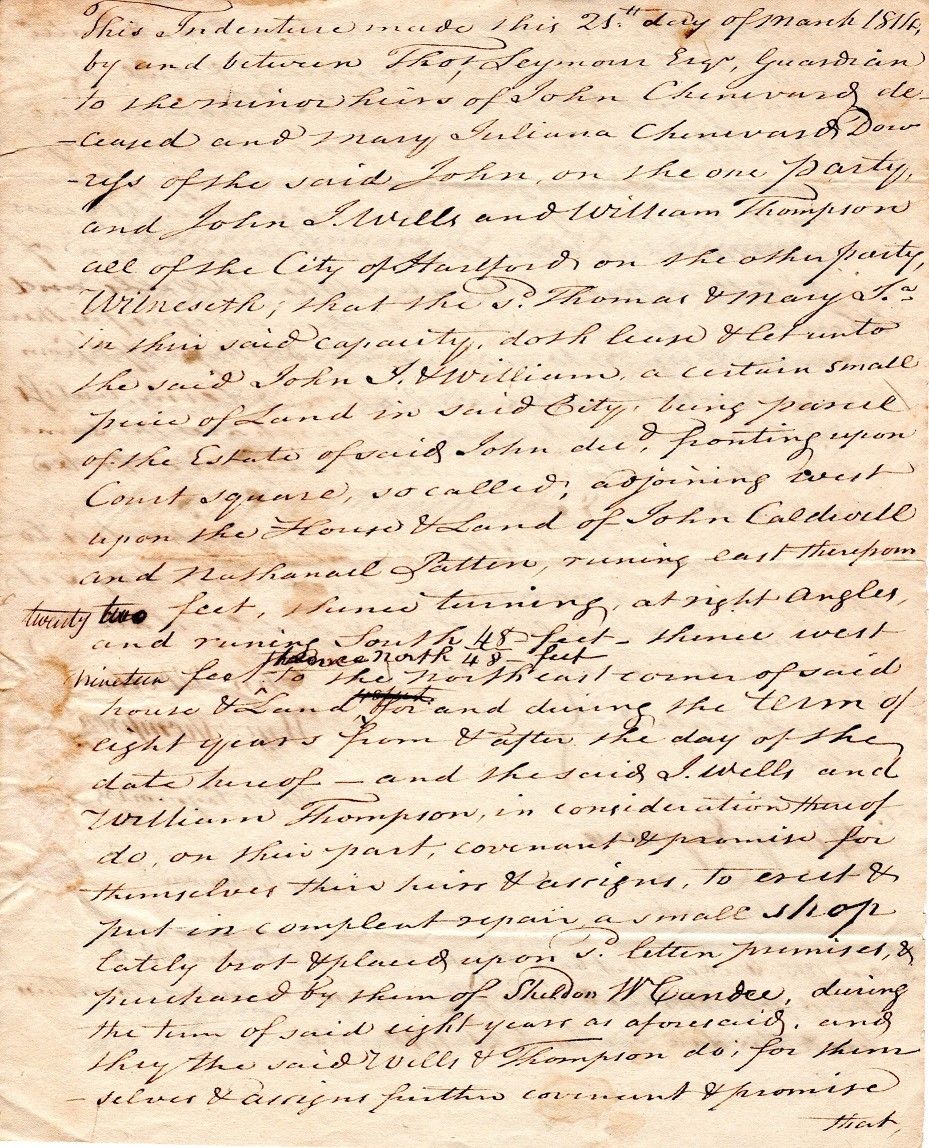 This Indenture made this 21.th day of March 1814,
by and between Thos, Seymour Esqr, Guardian
to the minor heirs of John Chenevard, de-
-ceased and Mary Juliana Chenevard Dow
-ress of the said John, on the one party,
and John I. Wells and William Thompson
all of the City of Hartford, on the other party,
Witneseth; that the Sd. Thomas & Mary Ja
in their said capacity, doth lease & let unto
the said John I. & William, a certain small
piece of Land in said City, being parcel
of the Estate of said John decd, fronting upon
Court square, so called, adjoining west
upon the House & Land of John Caldwell
and Nathanael Patten, runing east therefrom
twenty two feet, thence turning, at right angles,
and runing South 48 feet - thence west
nineteen feet thence north 48 - feet
to the north east corner of said
house & Land for and during the term of
eight years from & after the day of the
date hereof - and the said I. Wells and
William Thompson, in consideration there of
do, on their part, covenant & promise for
themselves their heirs & assigns, to erect &
put in compleat repair a small shop
lately brot & placed upon Sd. letten premises, &
purchased by them of Sheldon W Candee, during
the term of said eight years as aforesaid, and
they the said Wells & Thompson do, for them
-selves & assigns further covenant & promise
that,